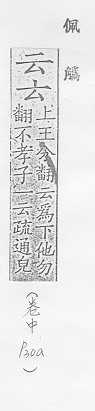 佩觿
云𠫓
上王分翻云為下他勿
翻不孝子一云疏通皃
(卷中
P30a)